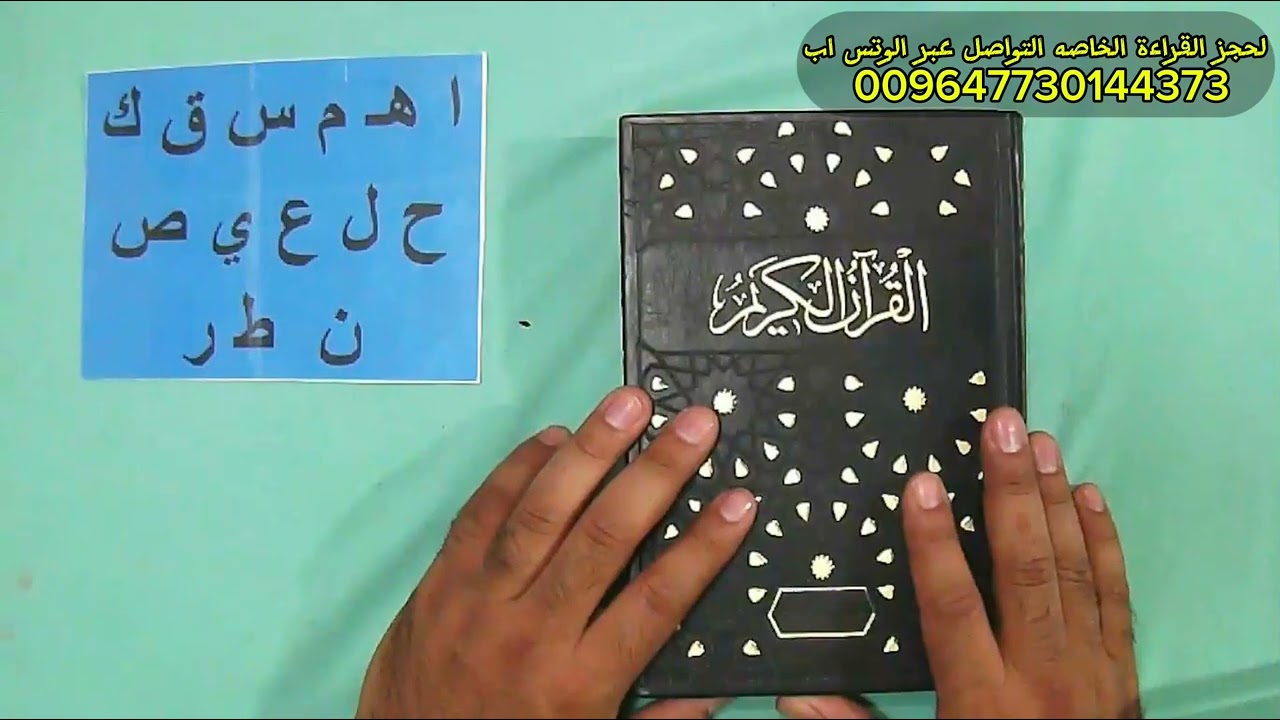 لحجز القراءة الخاصه التواصل عبر الوتس اب
009647730144373
ا هـ م س ق ك
ح ل ع ي ص
ن ط ر
الْقُرْآنُ الْكَرِيمُ